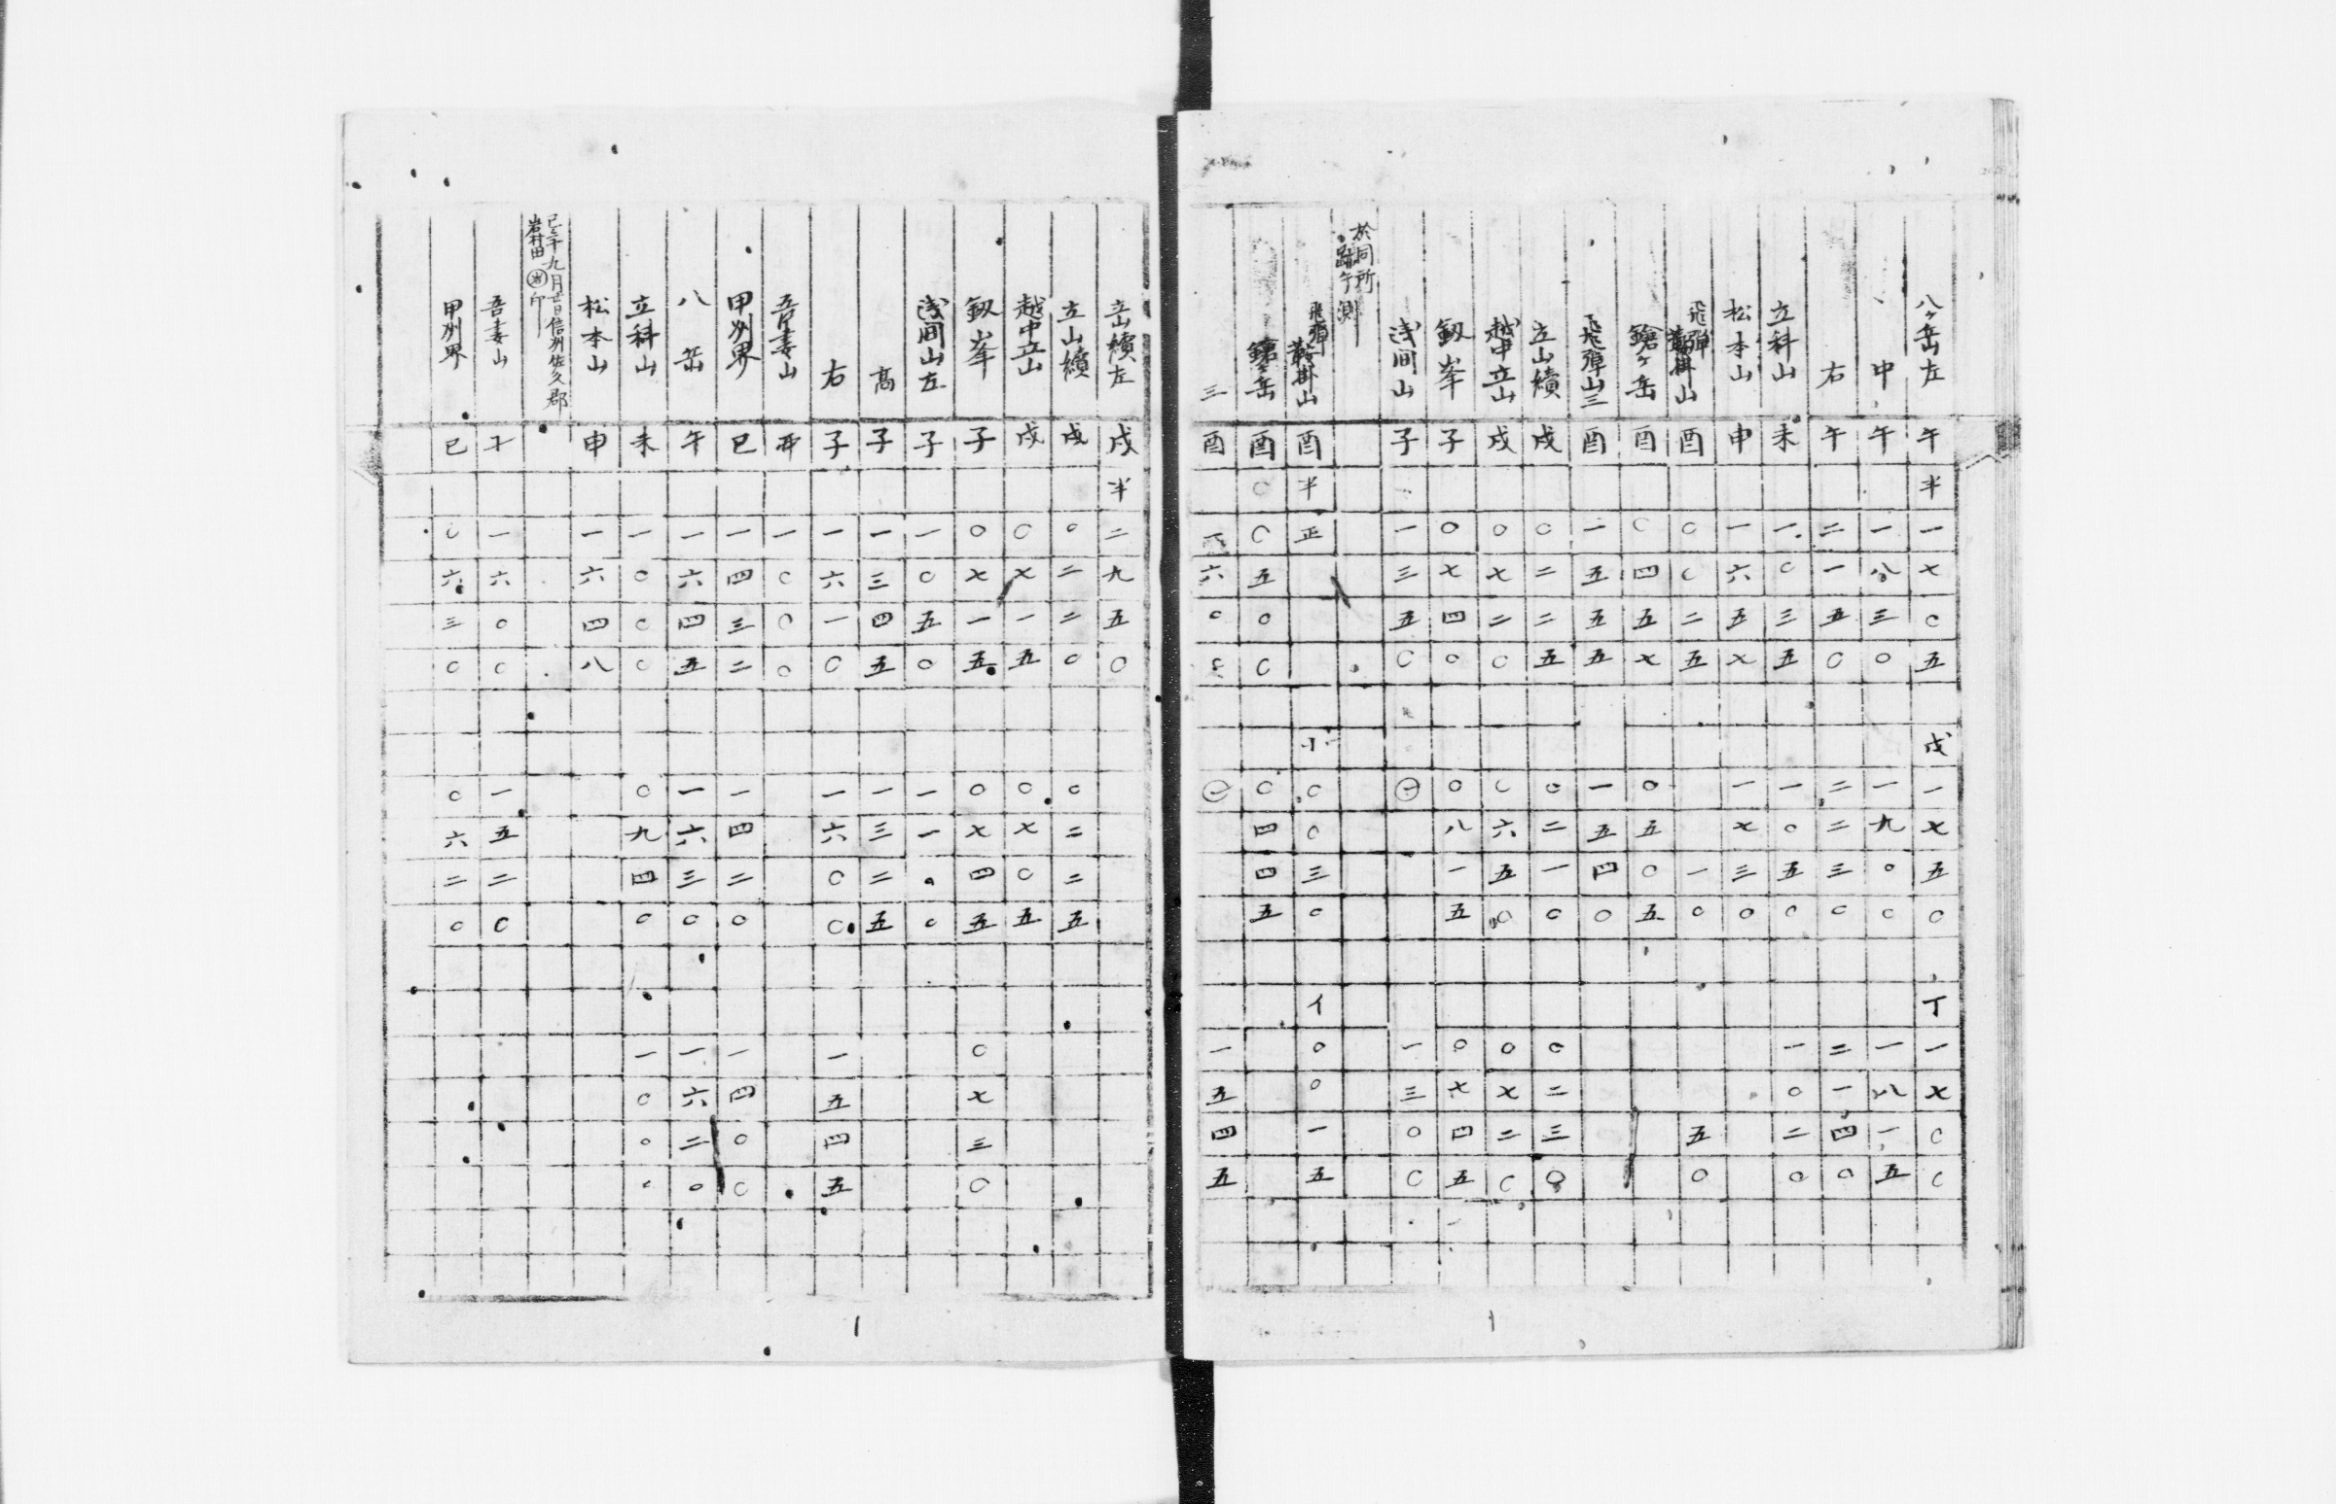 八ヶ岳左 午 半 一 七 〇 五 戌 一 七 五 〇 丁 一 七 〇 〇
中 午 一 八 三 〇 一 九 〇 〇 一 八 一 五
右 午 二 一 五 〇 二 二 三 〇 二 一 四 〇
立科山 未 一 〇 三 五 一 〇 五 〇 一 〇 二 〇
松本山 申 一 六 五 七 一 七 三 〇
飛弾鞍掛山 酉 〇 〇 二 五 一 〇 五 〇
鎗ヶ岳 酉 〇 四 五 七 〇 五 〇 五
飛弾山三 酉 一 五 五 五 一 五 四 〇
立山續 戌 〇 二 二 五 〇 二 一 〇 〇 二 三 〇
越中立山 戌 〇 七 二 〇 〇 六 五 〇 〇 七 二 〇
釼峯 子 〇 七 四 〇 〇 八 一 五 〇 七 四 五
浅間山 子 一 三 五 〇 一 一 三 〇 〇
於同所
午測
飛弾鞍掛山 酉 半 正 小 〇 〇 三 〇 イ 〇 〇 一 五
鎗ヶ岳 酉 〇 〇 五 〇 〇 〇 四 四 五
三 酉 六 〇 一 一 五 四 五
立山續左 戌 半 二 九 五 〇
立山續 戌 〇 二 二 〇 〇 二 二 五
越中立山 戌 〇 七 一 五 〇 七 〇 五
釼峯 子 〇 七 一 五 〇 七 四 五 〇 七 三 〇
浅間山左 子 一 〇 五 〇 一 一 〇 〇
高 子 一 三 四 五 一 三 二 五
右 子 一 六 一 〇 一 六 〇 〇 一 五 四 五
吾妻山 一 〇 〇 〇
甲刕界 巳 一 四 三 二 一 四 二 〇 一 四 〇 〇
八岳 午 一 六 四 五 一 六 三 〇 一 六 二 〇
立科山 未 一 〇 〇 〇 〇 九 四 〇 一 〇 〇
松本山 申 一 六 四 八
九月 日信刕佐久郡
岩村田 印
吾妻山 一 六 〇 〇 一 五 二 〇
甲刕界 巳 〇 六 三 〇 〇 六 二 〇